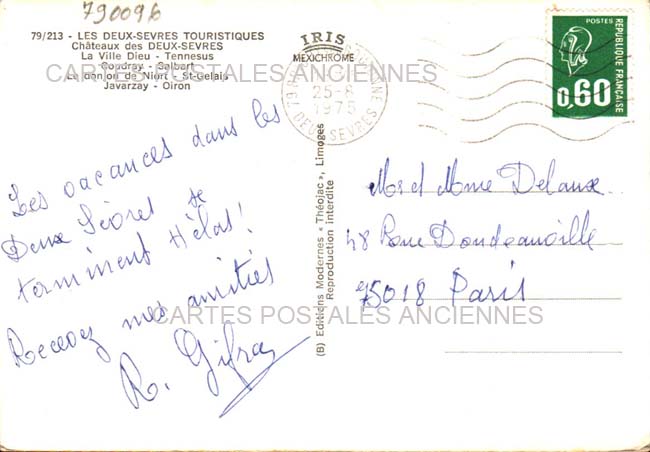 790096
79/213 - LES DEUX-SEVRES TOURISTIQUES
Châteaux des DEUX-SEVRES
La Ville Dieu - Tennesus
Coudray - Salbart
Le donjon de Niort - St-Gelais
Javarzay - Oiron
IRIS
MEXICHROME
CARTES POSTALES ANCIENNES
79
25-8
1975
DEUX SEVRES
POSTES
REPUBLIQUE FRANÇAISE
0,60
Les vacances dans les
Deux Sèvres se
terminent Hélas!
Recevez mes amitiés
R.
(B) Editions Modernes « Théojac », Limoges
Reproduction Interdite
Mr et Mme Delaux
48 Rue Doudeauville
75018 Paris
CARTES POSTALES ANCIENNES